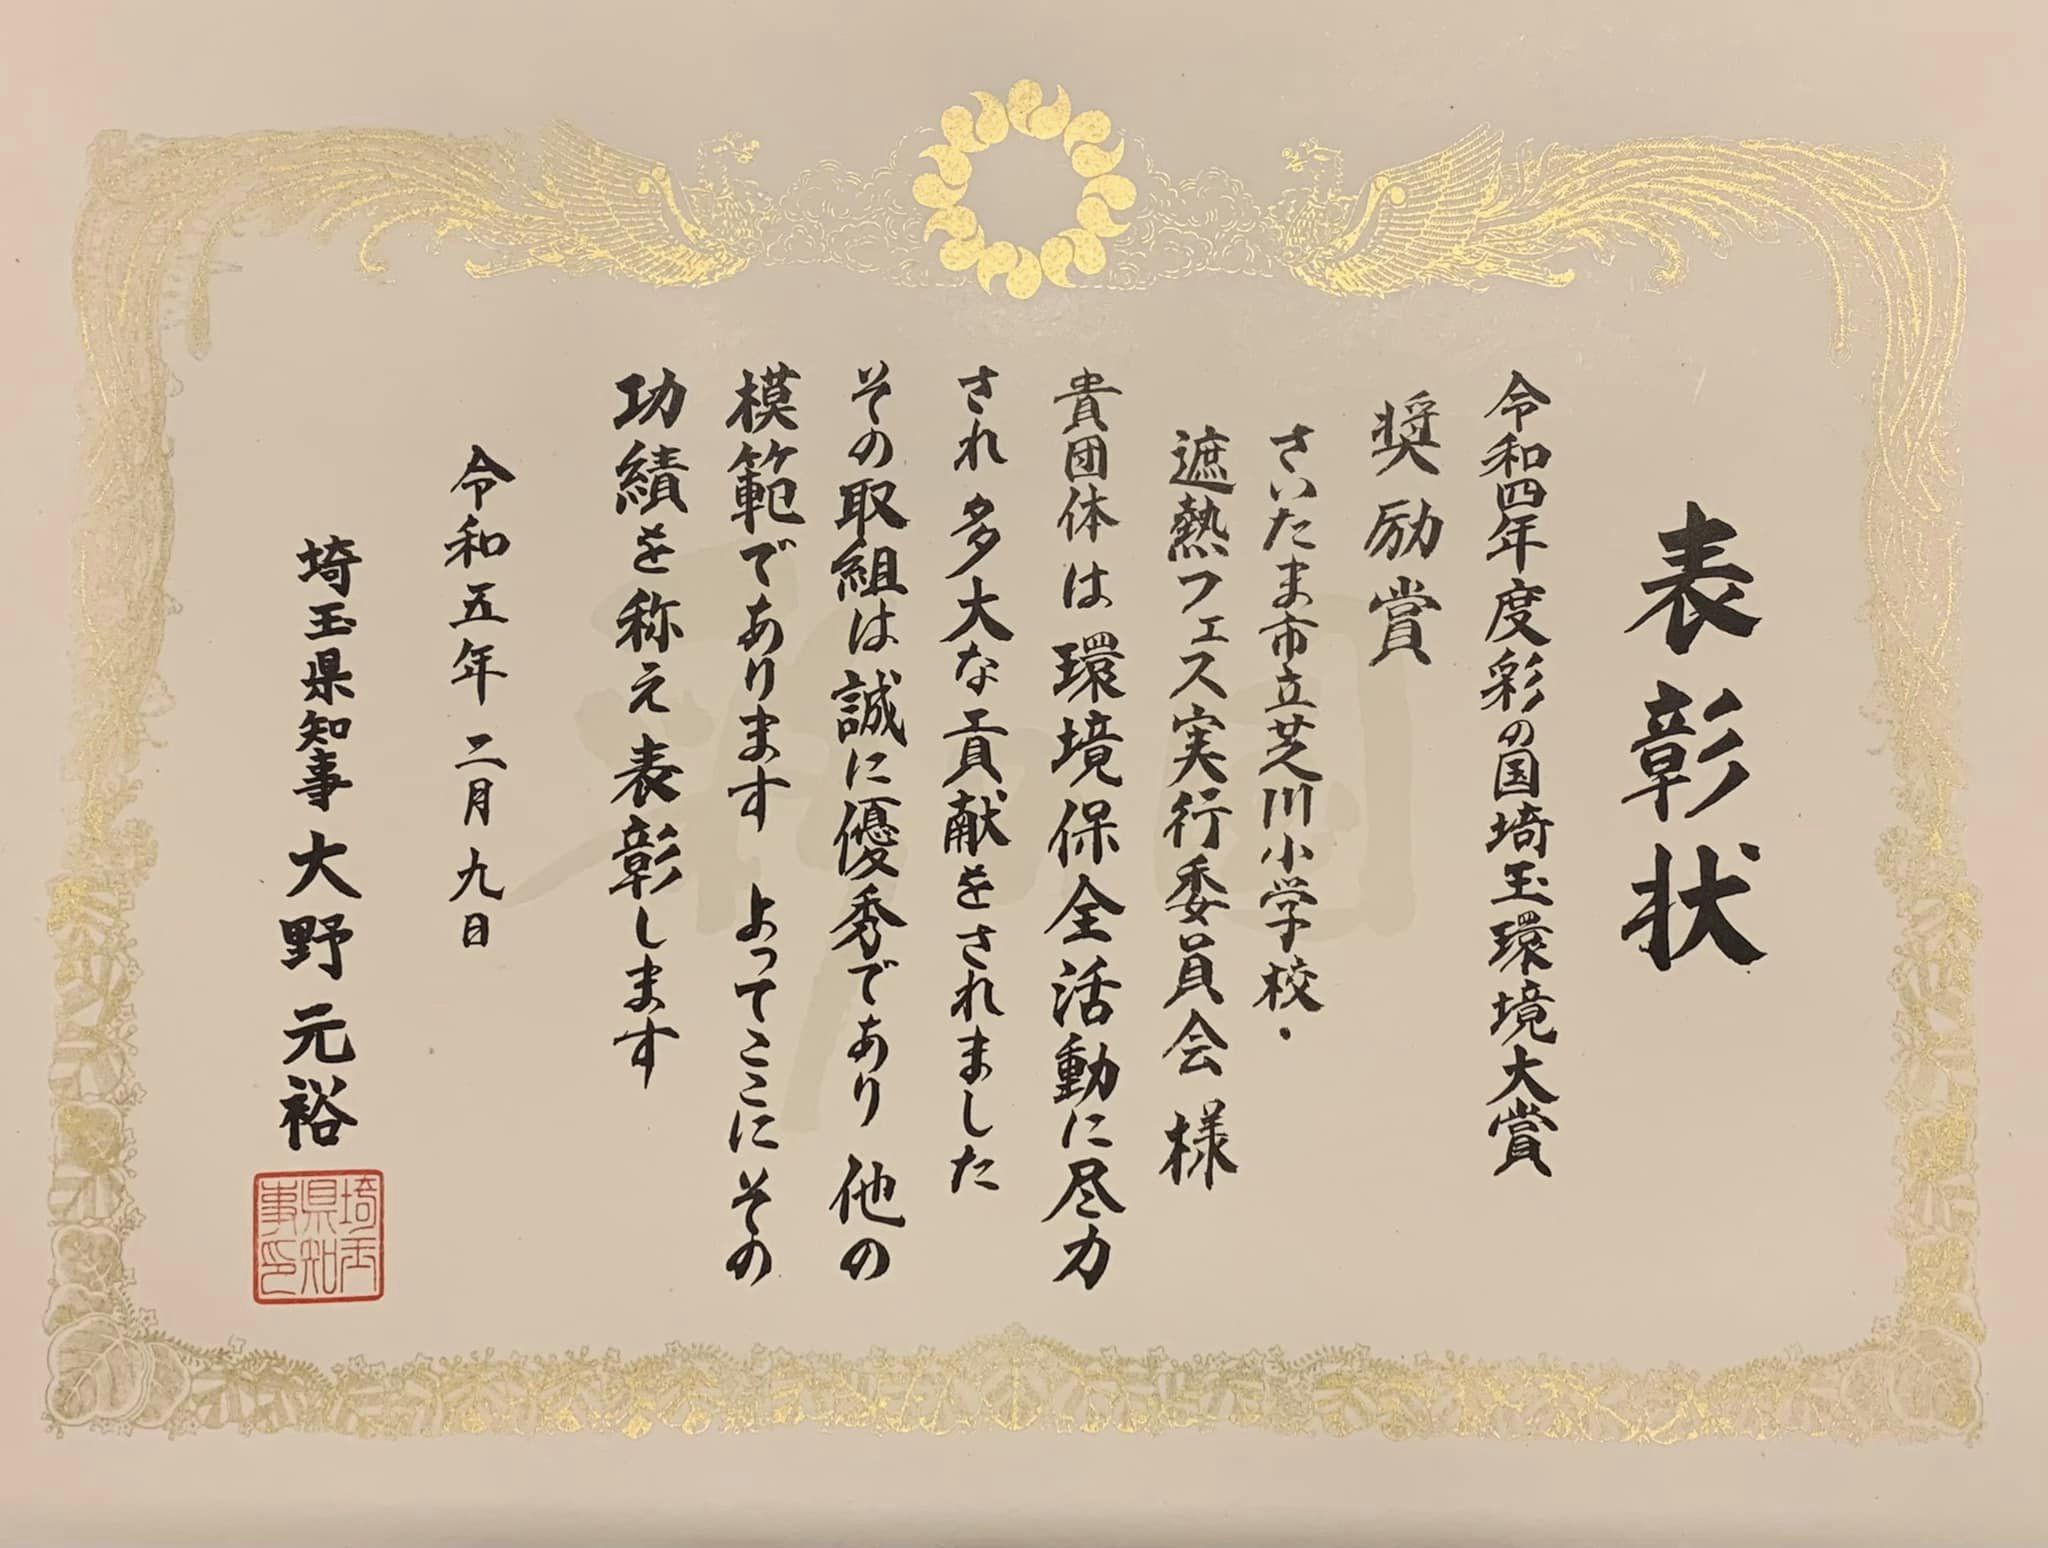 表彰状
令和四年度彩の国埼玉環境大賞
奨励賞
さいたま市立芝川小学校・
遮熱フェス実行委員会 様
貴団体は環境保全活動に尽力
され多大な貢献をされました
その取組は誠に優秀であり他の
模範であります よってここにその
功績を称え表彰します
令和五年二月九日
埼玉県知事 大野元裕
埼玉県知事印
彩の国